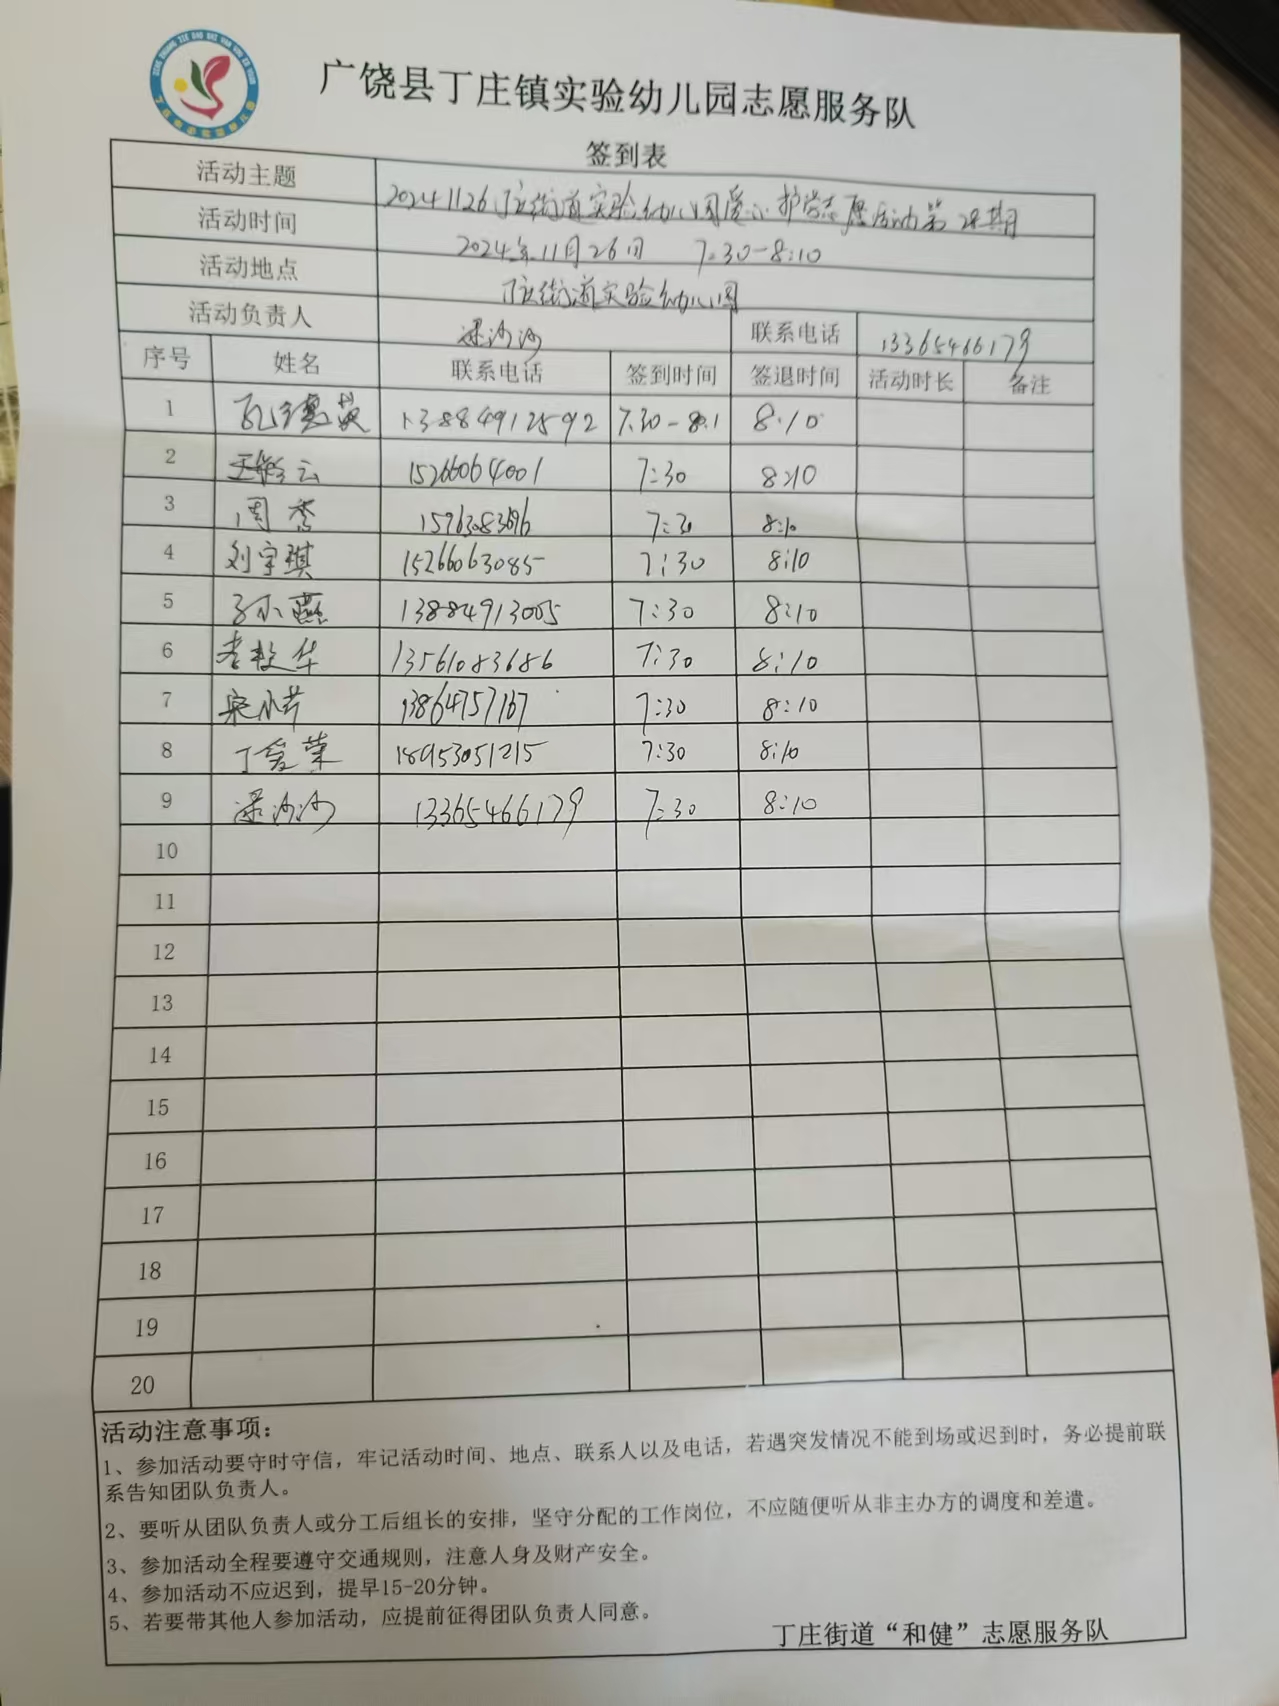 广饶县丁庄镇实验幼儿园志愿服务队
签到表
活动主题 20241126丁庄街道实验幼儿园爱心护学志愿活动第28期
活动时间 2024年11月26日 7:30-8:10
活动地点 丁庄街道实验幼儿园
活动负责人 梁沙沙 联系电话 13365466179
序号 姓名 联系电话 签到时间 签退时间 活动时长 备注
1 13884912592 7:30-8:1 8:10
2 15266064001 7:30 8:10
3 周秀 7:30 8:10
4 刘宇琪 15266063085 7:30 8:10
5 13884913005 7:30 8:10
6 13561083686 7:30 8:10
7 13864757167 7:30 8:10
8 丁爱荣 18953051215 7:30 8:10
9 梁沙沙 13365466179 7:30 8:10
10
11
12
13
14
15
16
17
18
19
20
活动注意事项：
1、参加活动要守时守信，牢记活动时间、地点、联系人以及电话，若遇突发情况不能到场或迟到时，务必提前联
系告知团队负责人。
2、要听从团队负责人或分工后组长的安排，坚守分配的工作岗位，不应随便听从非主办方的调度和差遣。
3、参加活动全程要遵守交通规则，注意人身及财产安全。
4、参加活动不应迟到，提早15-20分钟。
5、若要带其他人参加活动，应提前征得团队负责人同意。
丁庄街道“和健”志愿服务队